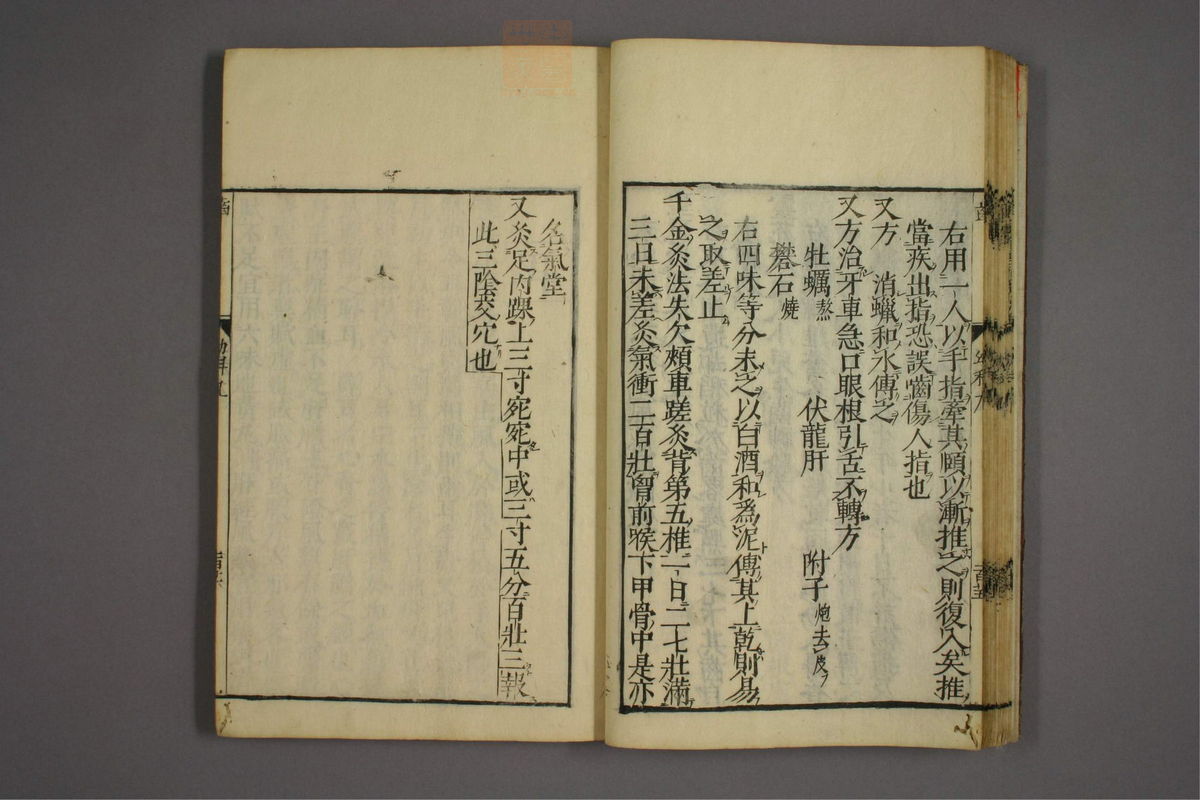 右用一人以手指牽其頤以漸推之則復入矣推
當疾出指恐誤嚙傷人指也
又方　消蠟和水傅之
又方治牙車急口眼根引舌不轉方
牡蠣熬　伏龍肝　附子炮去皮
礬石燒
右四味等分末之以白酒和為泥傅其上乾則易
之取差止
千金灸法失欠頰車蹉灸背第五椎一日二七壯滿
三日未差灸氣衝二百壯胷前喉下甲骨中是亦
名氣堂
又灸足内踝上三寸宛宛中或三寸五分百壯三報
此三陰交穴也